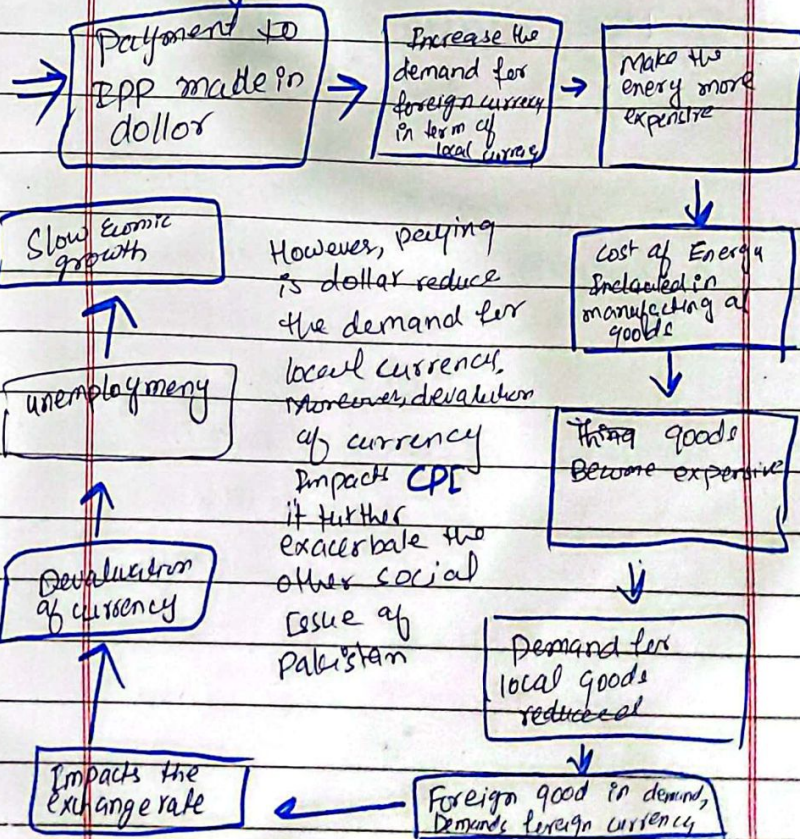 Payment to
IPP made in
dollor
Increase the
demand for
foreign currency
in term of
local currenc
Make the
enery more
expensive
Cost of Energy
Included in
manufacting of
goods
thing goods
Become expensive
Demand for
local goods
reduced
Foreign good in demand,
Demands foreign currency
Impacts the
exchange rate
Devaluation
of currency
unemploymeny
Slow Ecomic
growth
However, paying
is dollar reduce
the demand for
local currency.
Moreover, devalution
of currency
Impacts CPI
it further
exacerbate the
other social
Issue of
Pakistan